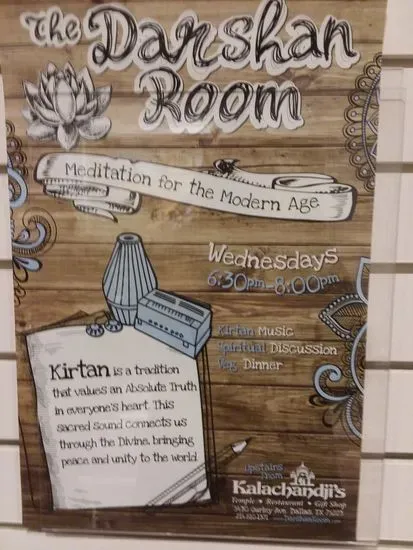 The Darshan
Room
Meditation for the Modern Age
Wednesdays
6:30pm-8:00pm
Kirtan Music
Spiritual Discussion
Veg. Dinner
Kirtan is a tradition
that values an Absolute Truth
in everyone's heart. This
sacred sound connects us
through the Divine, bringing
peace and unity to the world.
Upstairs
From
Kalachandji's
Temple • Restaurant • Gift Shop
5430 Gurley Ave. Dallas, TX 75223
www.DarshanRoom.com